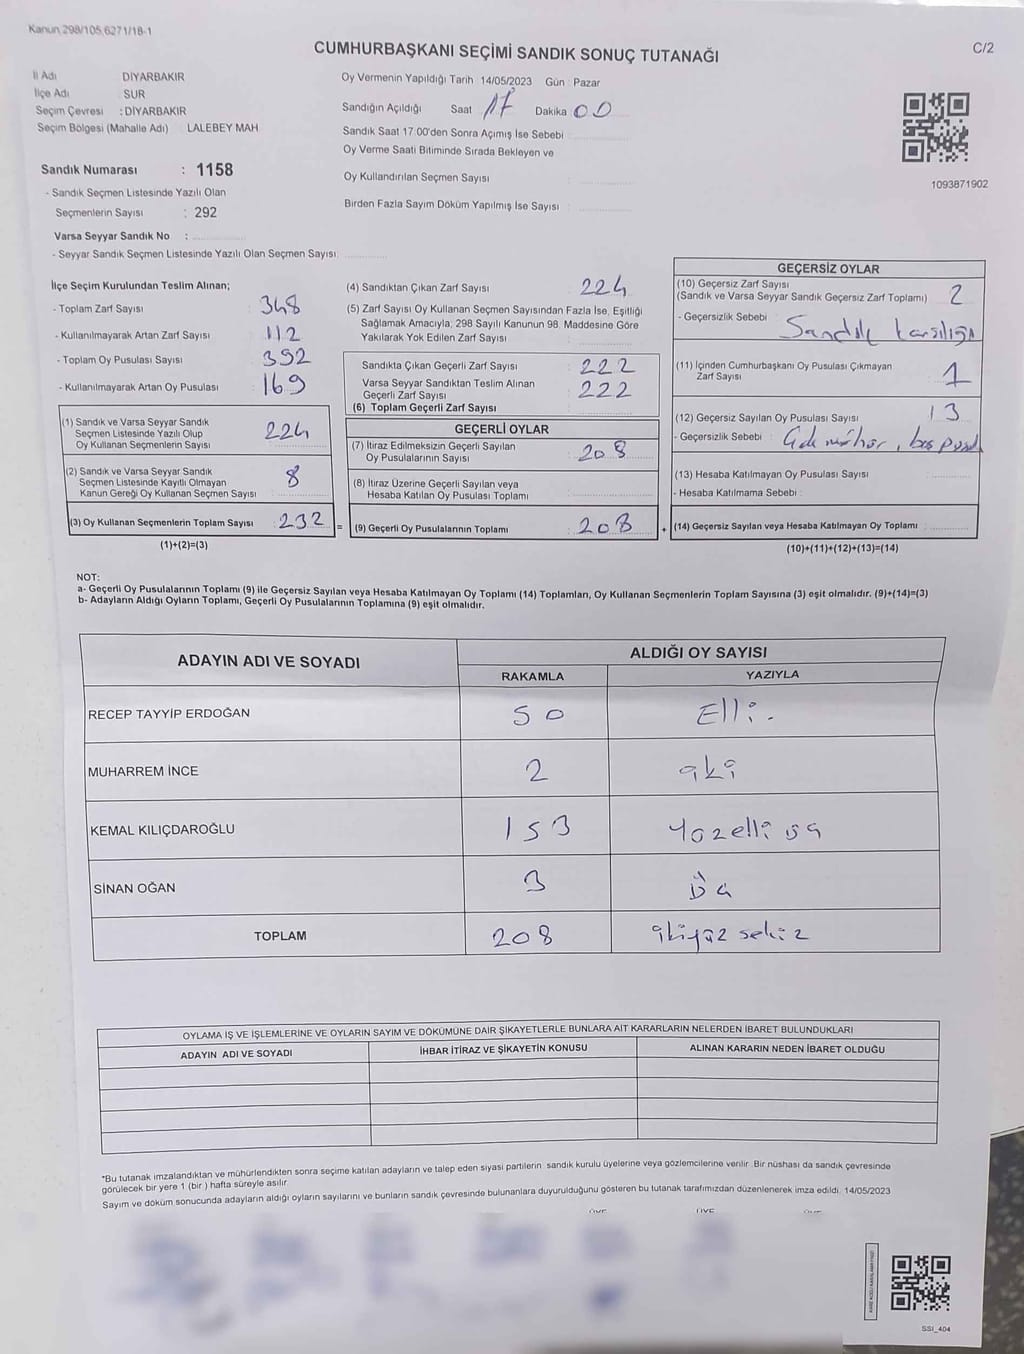 Kanun 298/105,6271/18-1
CUMHURBAŞKANI SEÇİMİ SANDIK SONUÇ TUTANAĞI
C/2
İl Adı DİYARBAKIR
İlçe Adı SUR
Seçim Çevresi : DİYARBAKIR
Seçim Bölgesi (Mahalle Adı) LALEBEY MAH
Sandık Numarası : 1158
- Sandık Seçmen Listesinde Yazılı Olan
Seçmenlerin Sayısı : 292
Varsa Seyyar Sandık No :
- Seyyar Sandık Seçmen Listesinde Yazılı Olan Seçmen Sayısı:
Oy Vermenin Yapıldığı Tarih 14/05/2023 Gün : Pazar
Sandığın Açıldığı Saat 17 Dakika 00
Sandık Saat 17:00'den Sonra Açımış İse Sebebi
Oy Verme Saati Bitiminde Sırada Bekleyen ve
Oy Kullandırılan Seçmen Sayısı :
Birden Fazla Sayım Döküm Yapılmış İse Sayısı :
1093871902
İlçe Seçim Kurulundan Teslim Alınan;
- Toplam Zarf Sayısı : 348
- Kullanılmayarak Artan Zarf Sayısı : 112
- Toplam Oy Pusulası Sayısı : 392
- Kullanılmayarak Artan Oy Pusulası : 169
(1) Sandık ve Varsa Seyyar Sandık
Seçmen Listesinde Yazılı Olup
Oy Kullanan Seçmenlerin Sayısı 224
(2) Sandık ve Varsa Seyyar Sandık
Seçmen Listesinde Kayıtlı Olmayan
Kanun Gereği Oy Kullanan Seçmen Sayısı 8
(3) Oy Kullanan Seçmenlerin Toplam Sayısı : 232
(1)+(2)=(3)
=
(4) Sandıktan Çıkan Zarf Sayısı : 224
(5) Zarf Sayısı Oy Kullanan Seçmen Sayısından Fazla İse, Eşitliği
Sağlamak Amacıyla, 298 Sayılı Kanunun 98. Maddesine Göre
Yakılarak Yok Edilen Zarf Sayısı :
Sandıkta Çıkan Geçerli Zarf Sayısı : 222
Varsa Seyyar Sandıktan Teslim Alınan
Geçerli Zarf Sayısı : 222
(6) Toplam Geçerli Zarf Sayısı :
GEÇERLİ OYLAR
(7) İtiraz Edilmeksizin Geçerli Sayılan
Oy Pusulalarının Sayısı : 208
(8) İtiraz Üzerine Geçerli Sayılan veya
Hesaba Katılan Oy Pusulası Toplamı :
(9) Geçerli Oy Pusulalarının Toplamı : 208
+
GEÇERSİZ OYLAR
(10) Geçersiz Zarf Sayısı
(Sandık ve Varsa Seyyar Sandık Geçersiz Zarf Toplamı) : 2
- Geçersizlik Sebebi : Sandık
(11) İçinden Cumhurbaşkanı Oy Pusulası Çıkmayan
Zarf Sayısı : 1
(12) Geçersiz Sayılan Oy Pusulası Sayısı : 13
- Geçersizlik Sebebi : mühür, boş
(13) Hesaba Katılmayan Oy Pusulası Sayısı :
- Hesaba Katılmama Sebebi :
(14) Geçersiz Sayılan veya Hesaba Katılmayan Oy Toplamı :
(10)+(11)+(12)+(13)=(14)
NOT:
a- Geçerli Oy Pusulalarının Toplamı (9) ile Geçersiz Sayılan veya Hesaba Katılmayan Oy Toplamı (14) Toplamları, Oy Kullanan Seçmenlerin Toplam Sayısına (3) eşit olmalıdır. (9)+(14)=(3)
b- Adayların Aldığı Oyların Toplamı, Geçerli Oy Pusulalarının Toplamına (9) eşit olmalıdır.
ADAYIN ADI VE SOYADI
ALDIĞI OY SAYISI
RAKAMLA YAZIYLA
RECEP TAYYİP ERDOĞAN 50 Elli.
MUHARREM İNCE 2 iki
KEMAL KILIÇDAROĞLU 153 Yüzelli üç
SİNAN OĞAN 3 Üç
TOPLAM 208 ikiyüz sekiz
OYLAMA İŞ VE İŞLEMLERİNE VE OYLARIN SAYIM VE DÖKÜMÜNE DAİR ŞİKAYETLERLE BUNLARA AİT KARARLARIN NELERDEN İBARET BULUNDUKLARI
ADAYIN ADI VE SOYADI İHBAR İTİRAZ VE ŞİKAYETİN KONUSU ALINAN KARARIN NEDEN İBARET OLDUĞU
*Bu tutanak imzalandıktan ve mühürlendikten sonra seçime katılan adayların ve talep eden siyasi partilerin sandık kurulu üyelerine veya gözlemcilerine verilir. Bir nüshası da sandık çevresinde
görülecek bir yere 1 (bir ) hafta süreyle asılır.
Sayım ve döküm sonucunda adayların aldığı oyların sayılarını ve bunların sandık çevresinde bulunanlara duyurulduğunu gösteren bu tutanak tarafımızdan düzenlenerek imza edildi. 14/05/2023
SSI_404